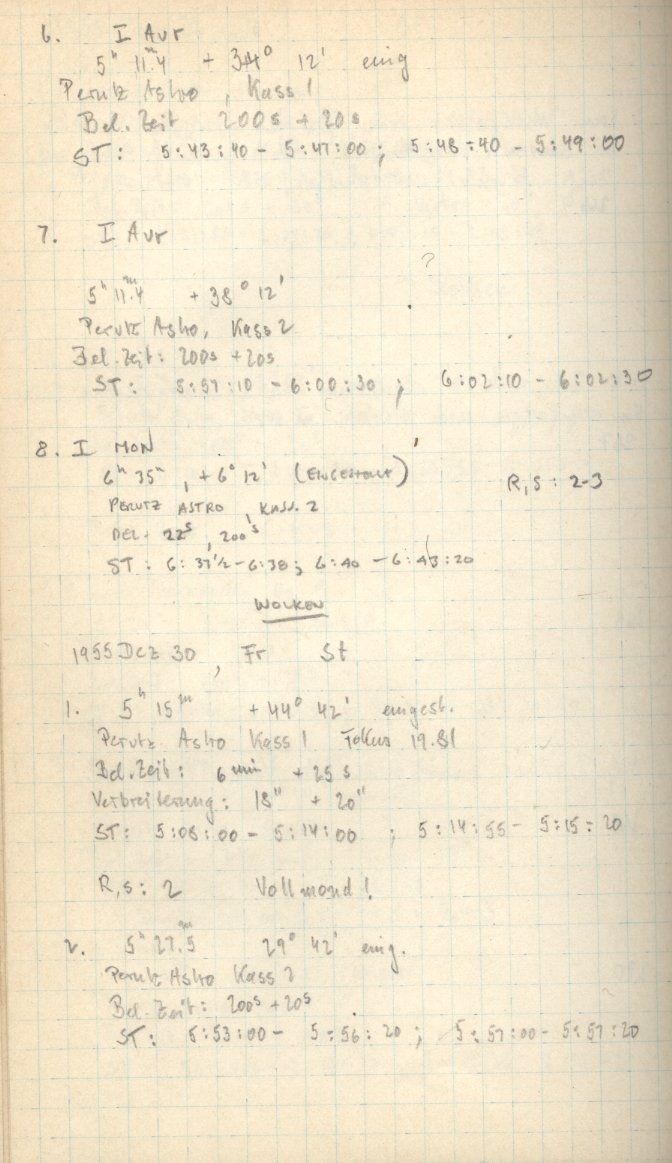 6. I Aur
5ʰ 11.ᵐ4 + 34° 12' eing
Perutz Astro, Kass 1
Bel. Zeit 200s + 20s
ST: 5:43:40 - 5:47:00; 5:48:40 - 5:49:00
7. I Aur
?
5ʰ 11.ᵐ4 + 38° 12'
Perutz Astro, Kass 2
Bel. Zeit: 200s + 20s
ST: 5:57:10 - 6:00:30; 6:02:10 - 6:02:30
8. I MON
6ʰ 35ᵐ, +6° 12' (EINGESTELLT)
R,S: 2-3
PERUTZ ASTRO, KASS. 2
BEL. 22ˢ, 200ˢ
ST: 6:37½ - 6:38; 6:40 - 6:43:20
WOLKEN
1955 Dez 30, Fr St
1. 5ʰ 15ᵐ +44° 42' eingest.
Perutz Astro Kass 1 Fokus 19.81
Bel. Zeit: 6 min + 25 s
Verbreiterung: 18" + 20"
ST: 5:08:00 - 5:14:00; 5:14:55 - 5:15:20
R,S: 2 Vollmond!
2. 5ʰ 27.ᵐ5 29° 42' eing.
Perutz Astro Kass 2
Bel. Zeit: 200s + 20s
ST: 5:53:00 - 5:56:20; 5:57:00 - 5:57:20